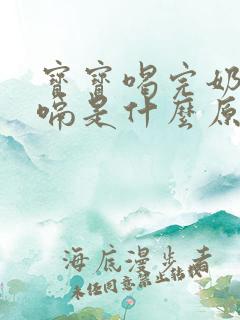 寶寶喝完奶
喘是什麼原
海底漫步者
未經同意禁止轉載